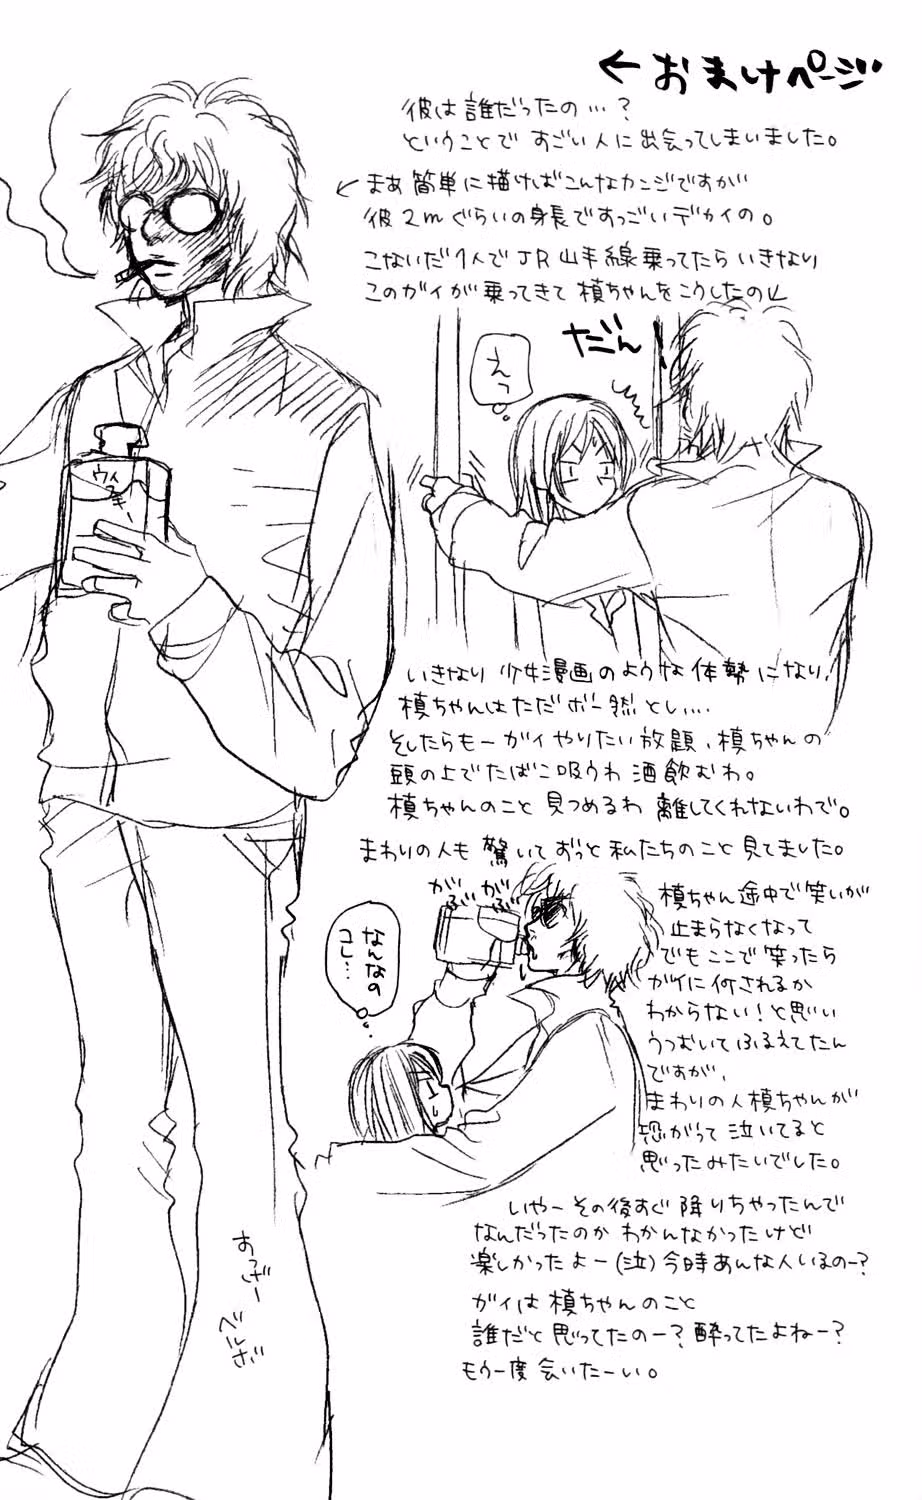 ← おまけページ
彼は誰だったの…?
ということで すごい人に出会ってしまいました。
←まあ簡単に描けばこんなカンジですが
彼2mぐらいの身長ですっごいデカイの。
こないだ1人でJR山手線乗ってたらいきなり
このガイが乗ってきて槙ちゃんをこうしたの↙
だん!
えっ
ウィスキー
いきなり少女漫画のような体勢になり、
槙ちゃんはただボー然とし….
そしたらもーガイやりたい放題、槙ちゃんの
頭の上でたばこ吸うわ酒飲むわ。
槙ちゃんのこと見つめるわ離してくれないわで。
まわりの人も驚いておっと私たちのこと見てました。
がぶがぶ
なんなの
コレ…
槙ちゃん途中で笑いが
止まらなくなって
でもここで笑ったら
ガイに何されるか
わからない!と思い
うつむいてふるえてたん
ですが、
まわりの人槙ちゃんが
恐がって泣いてると
思ったみたいでした。
いやーその後すぐ降りちゃったんで
なんだったのかわかんなかったけど
楽しかったよー(泣)今時あんな人いるのー?
ガイは槙ちゃんのこと
誰だと思ってたのー?酔ってたよねー?
もう一度会いたーい。
おっざー
ベルボ